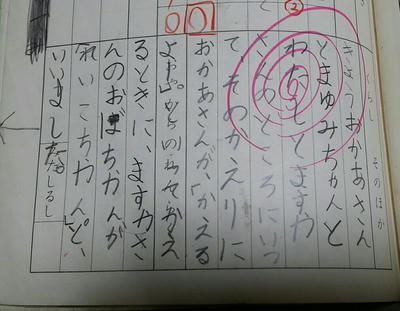 くらし そのほか
きょうおかあさん
とまゆみちゃんと
わたしとますや
さんのところにいっ
て、そのかえりに
おかあさんが、「かえる
よお」
るときに、ますやさ
んのおばちゃんが
れいこちゃんと、
いいました
しるし
②